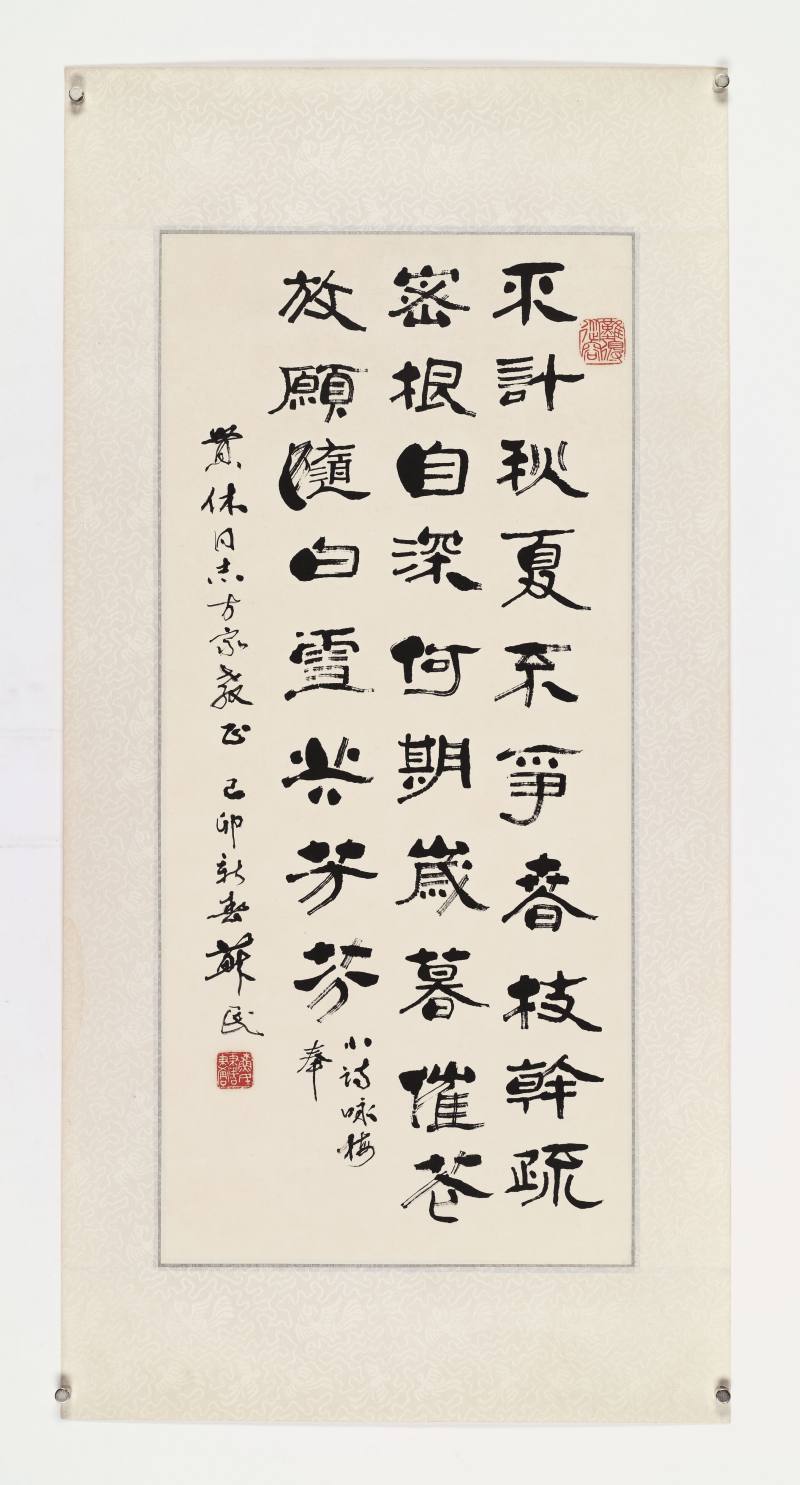 不計秋夏不爭春枝幹疏
密根自深何期歲暮催花
放願隨白雪共芳芬
小詩咏梅
奉
業休同志方家教正 己卯新春蘇民
難得從容